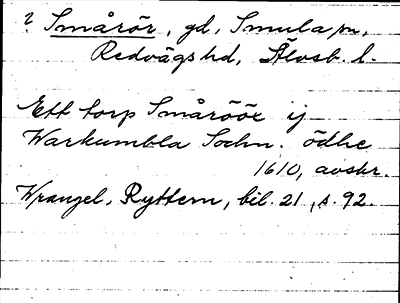 ? Smårör, gd, Smula sn,
Redvägs hd, Älvsb. l.
Ett torp Smårööx ij
Warkumbla Sochn. ödhe
1610, avskr.
Wrangel, Ryttern, bil. 21, s. 92.